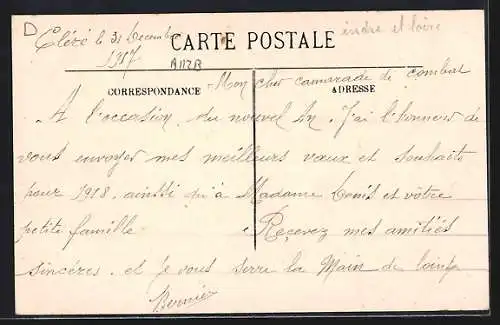 D
Cléré le 31 Decembre
1917
indre et loire
CARTE POSTALE
A1123
Mon cher camarade de combat
CORRESPONDANCE
ADRESSE
A l'occasion du nouvel An. J'ai l'honneur de
vous envoyer mes meilleurs vœux et souhaits
pour 1918. ainssi qu'à Madame Denis et vôtre
petite famille. Reçevez mes amitiés
sincéres. et je vous serre la Main de loin
Bernier